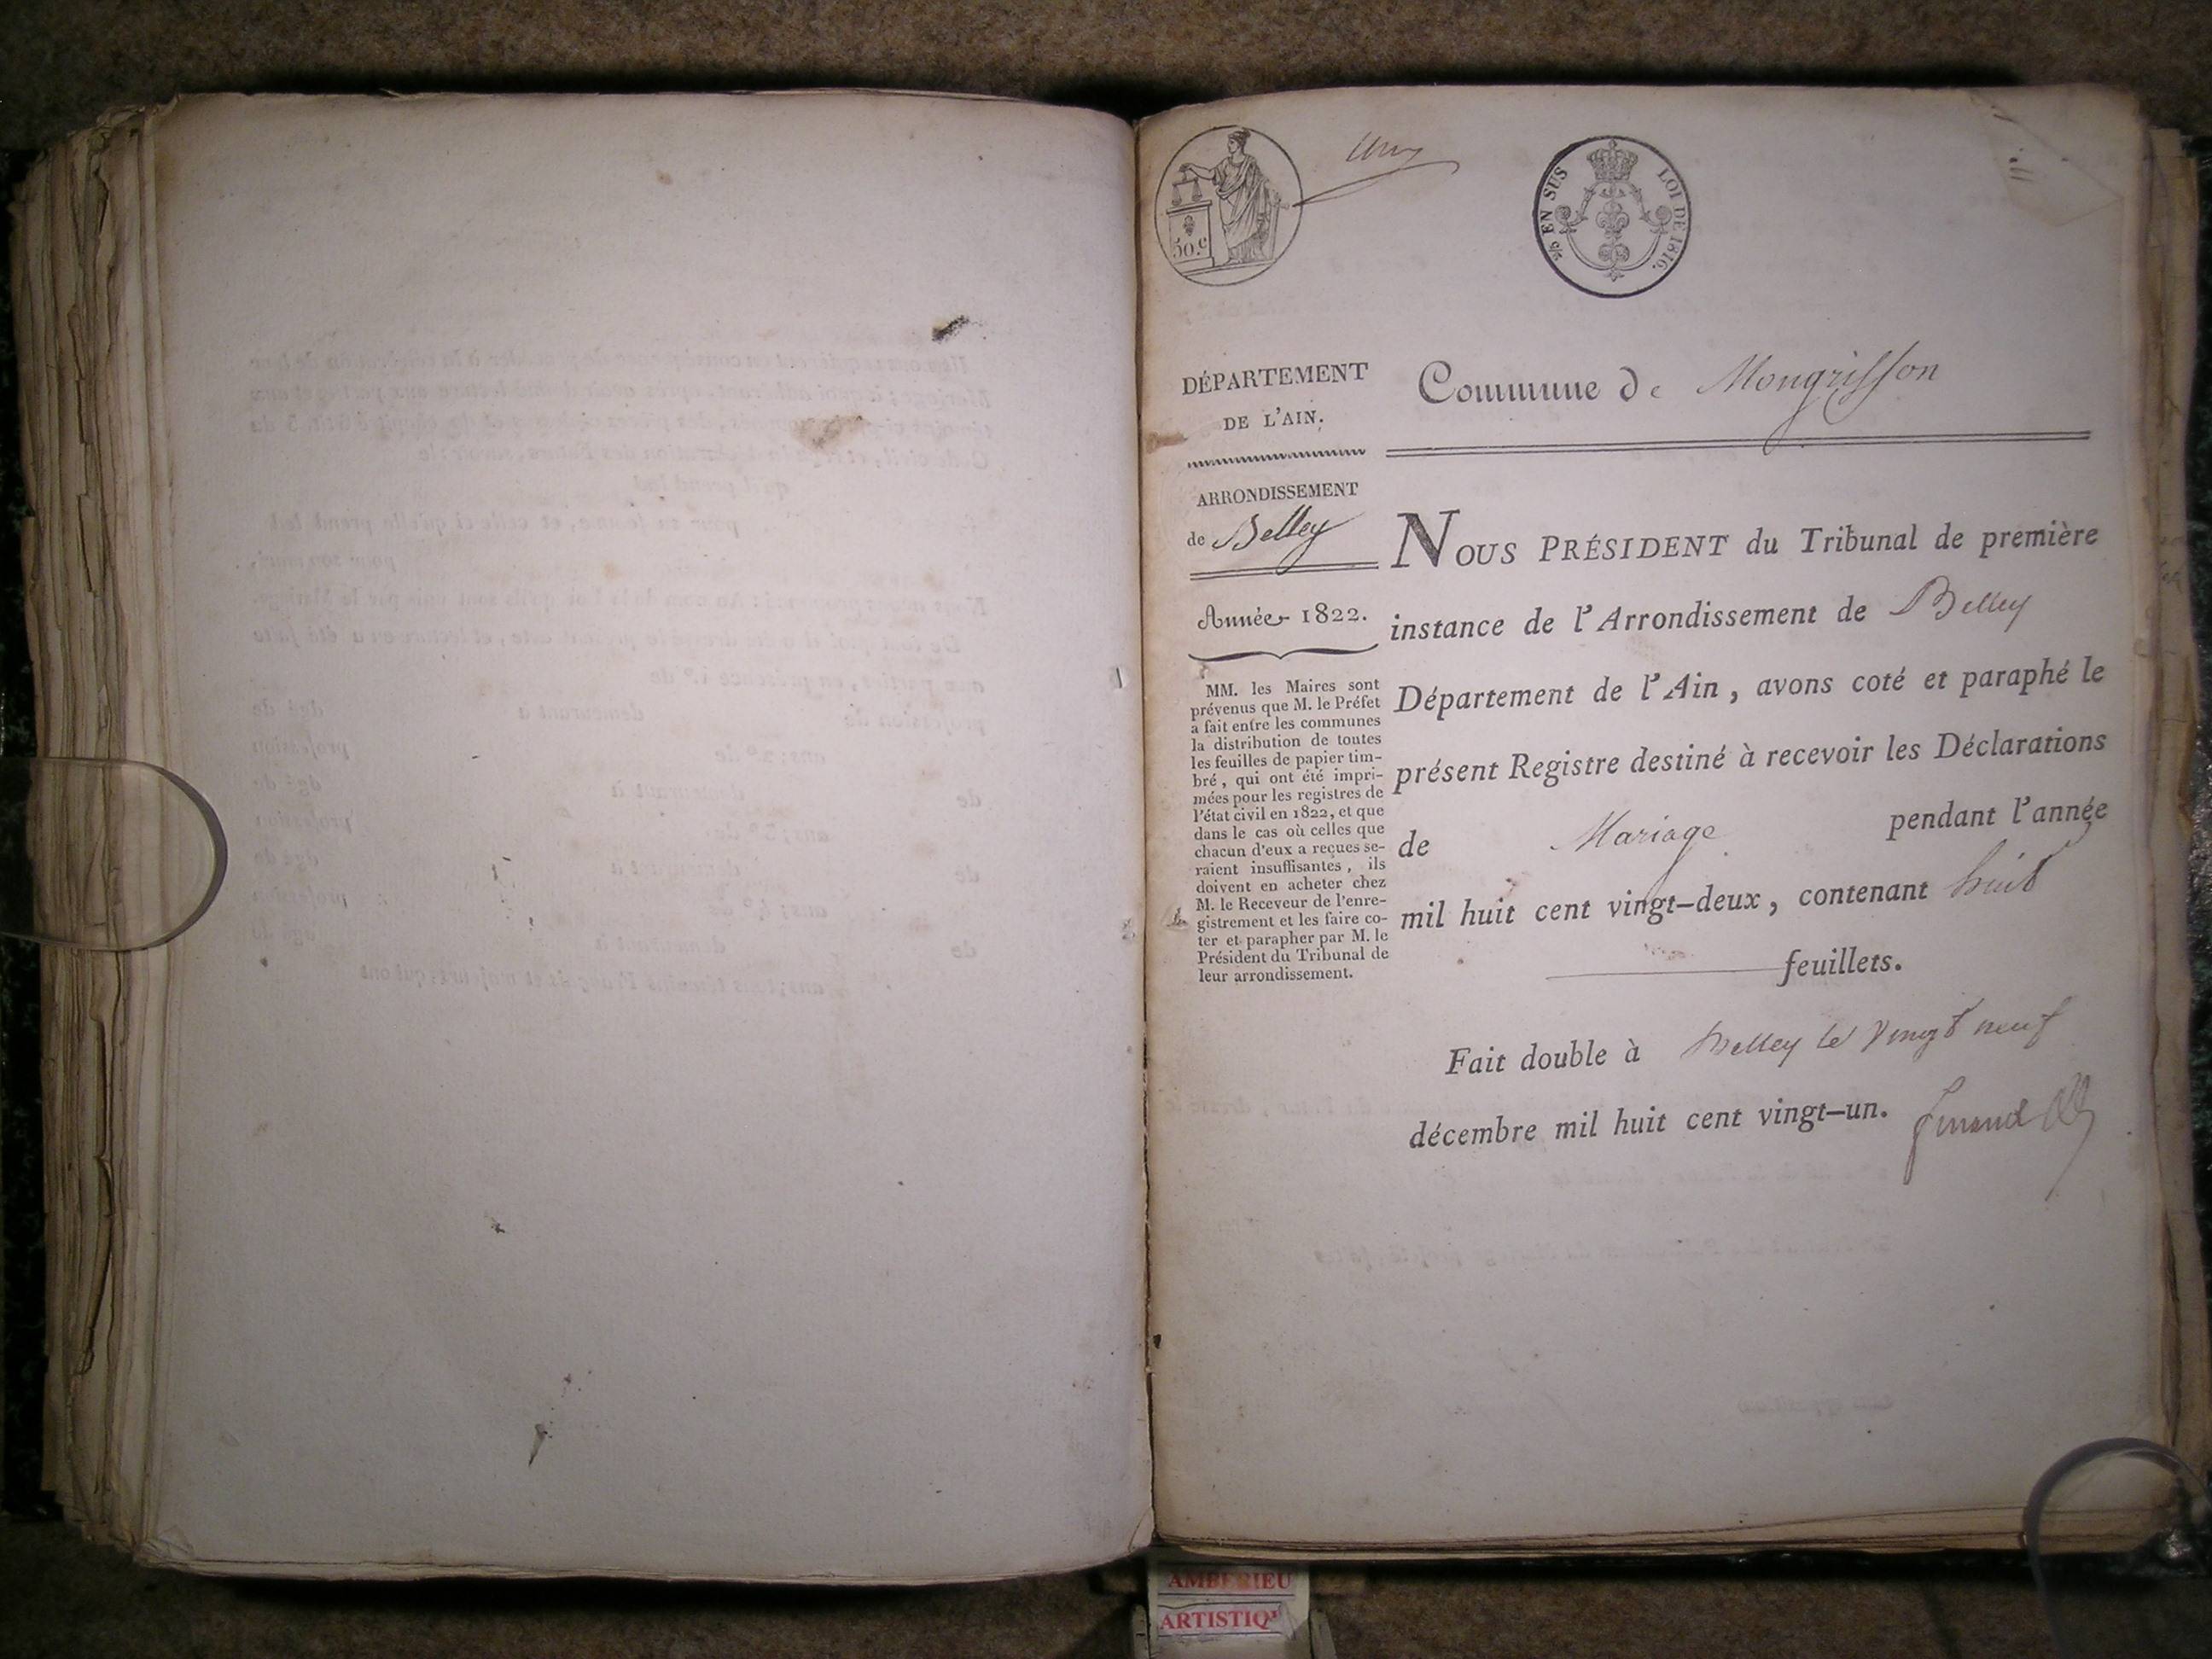 50.c
un
EN SUS
LOI DE 1816.
DÉPARTEMENT
DE L'AIN.
ARRONDISSEMENT
de Belley
Année 1822.
MM. les Maires sont
prévenus que M. le Préfet
a fait entre les communes
la distribution de toutes
les feuilles de papier tim-
bré, qui ont été impri-
mées pour les registres de
l'état civil en 1822, et que
dans le cas où celles que
chacun d'eux a reçues se-
raient insuffisantes, ils
doivent en acheter chez
M. le Receveur de l'enre-
gistrement et les faire co-
ter et parapher par M. le
Président du Tribunal de
leur arrondissement.
Commune de Mongrisson
NOUS PRÉSIDENT du Tribunal de première
instance de l'Arrondissement de Belley
Département de l'Ain, avons coté et paraphé le
présent Registre destiné à recevoir les Déclarations
de Mariage pendant l'année
mil huit cent vingt-deux, contenant huit
feuillets.
Fait double à Belley le vingt neuf
décembre mil huit cent vingt-un.
AMBERIEU
ARTISTIQ